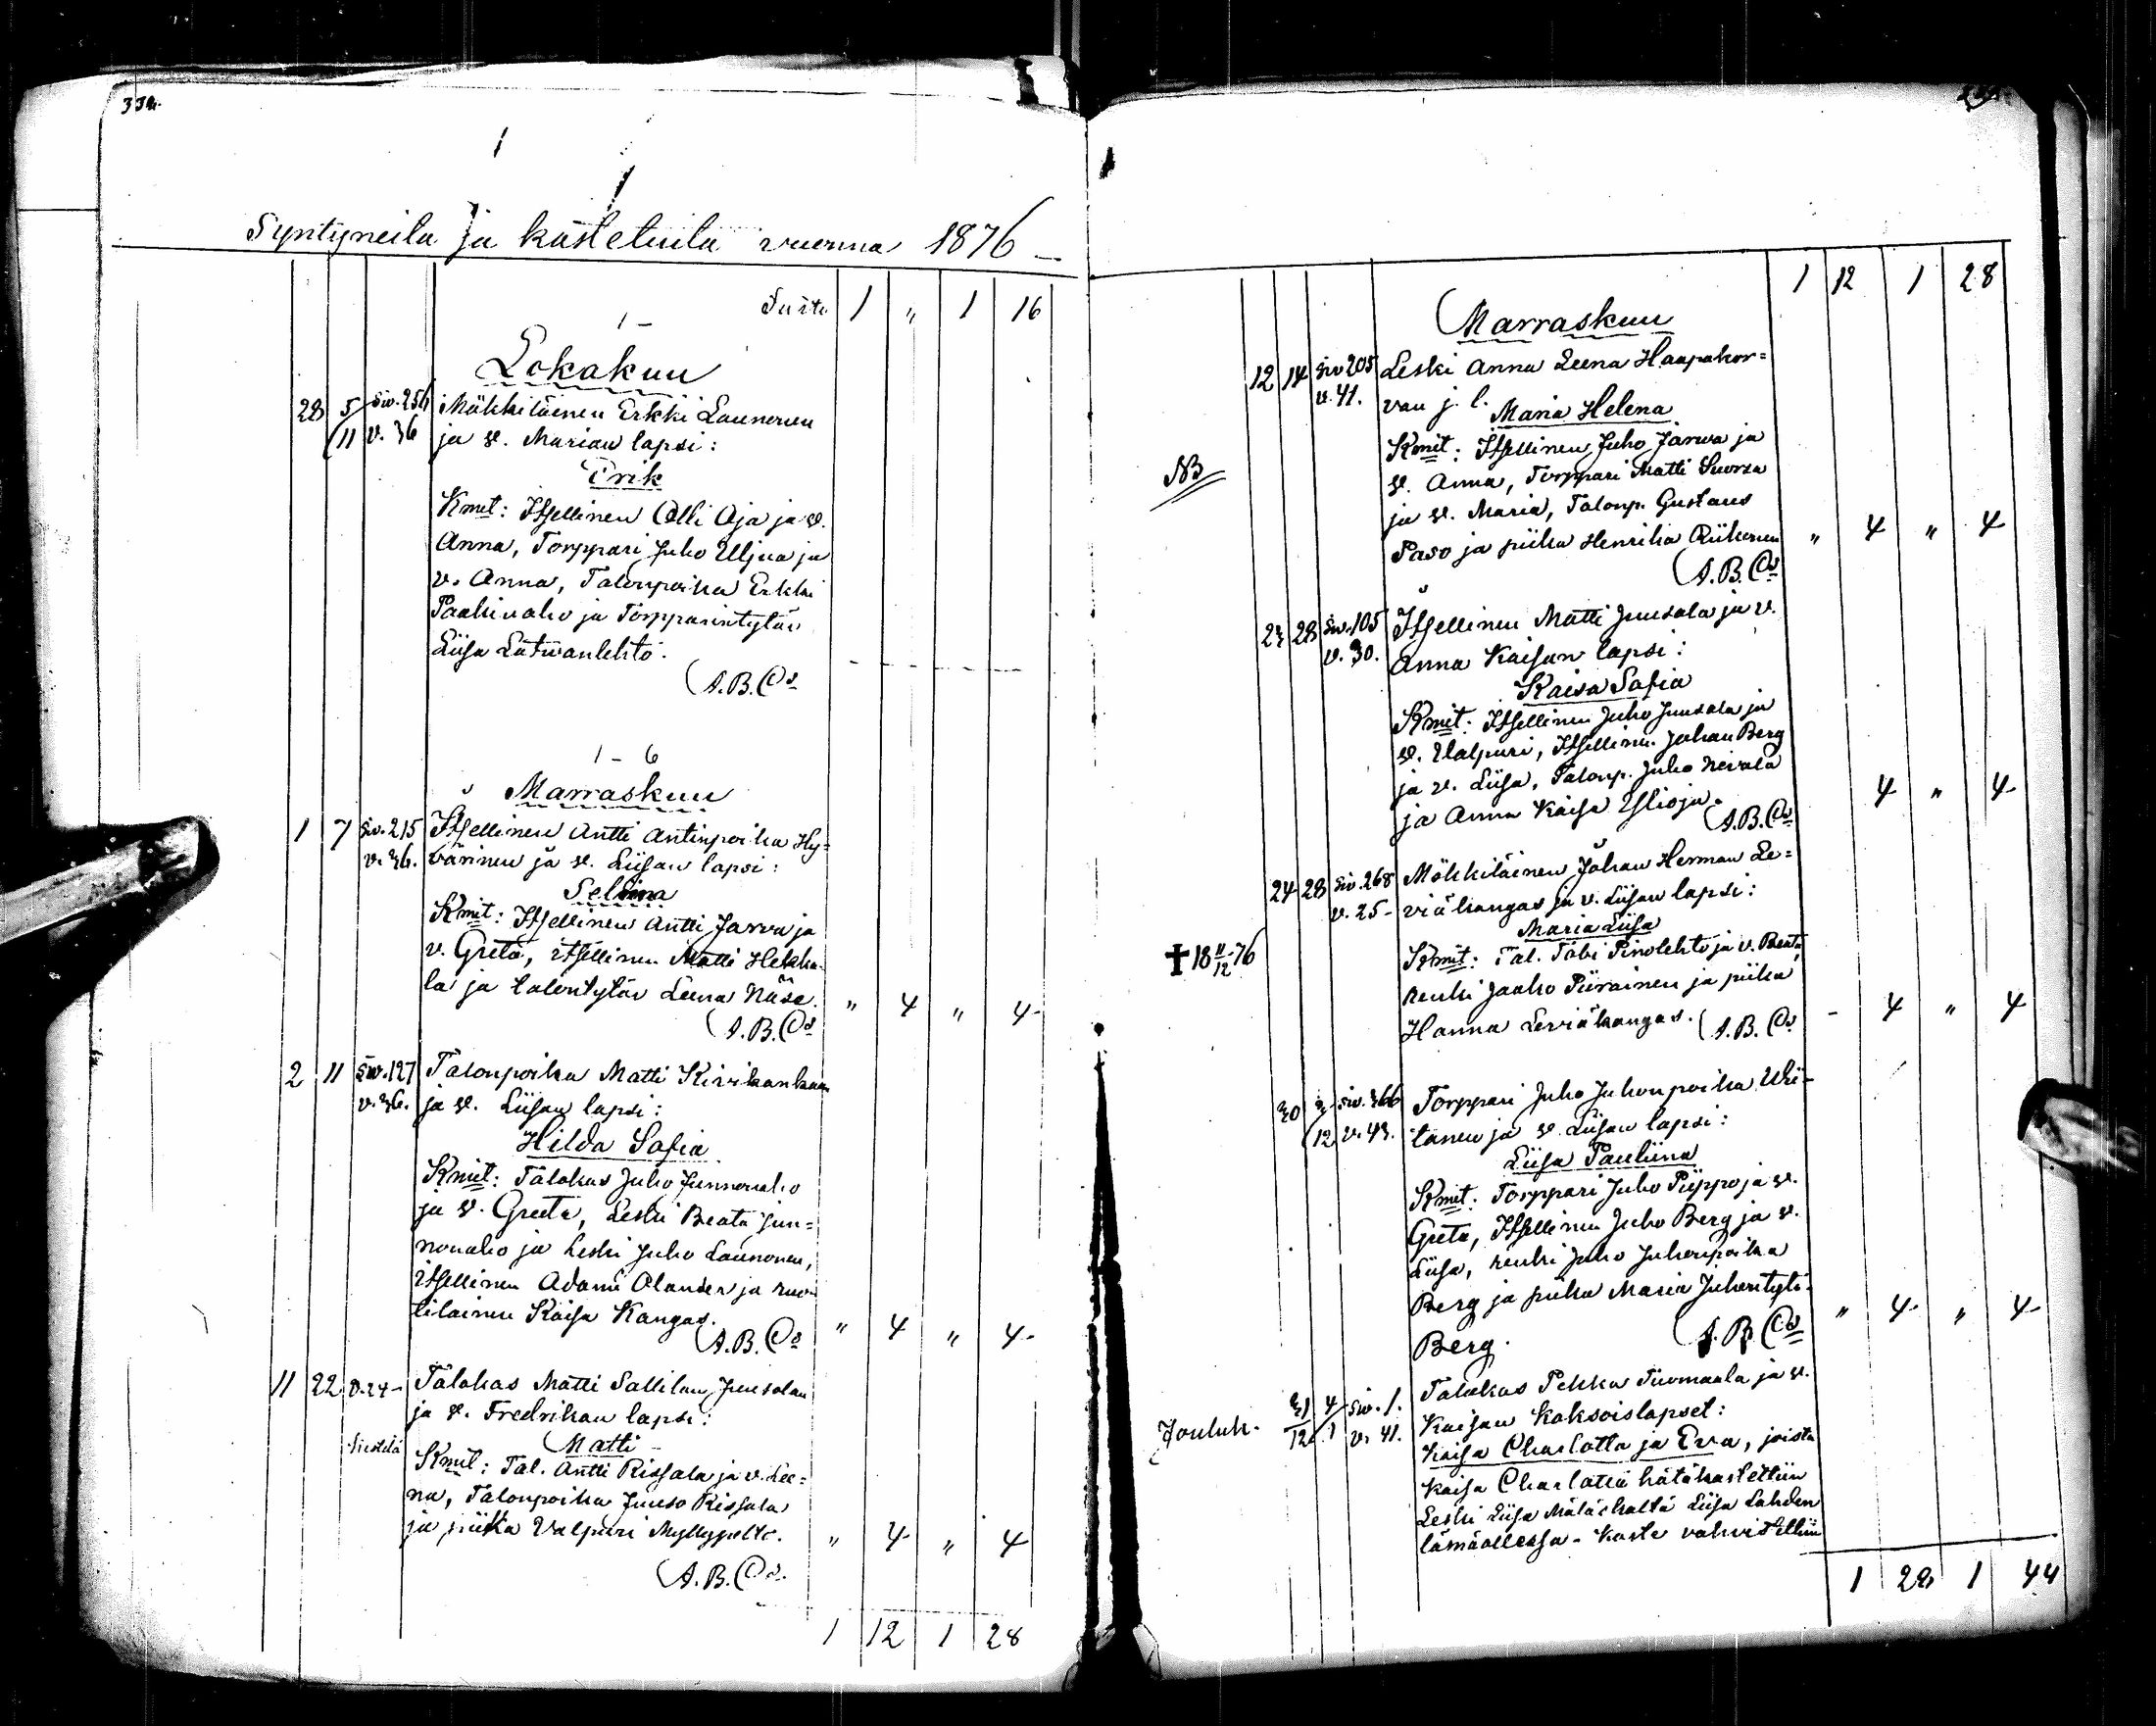 334.
Syntyneitä ja kastetuita vuonna 1876
Siirto 1 " 1 16
1 -
Lokakuu
28 5/11 Siv. 256 v. 36 Mökkiläinen Erkki Launonen
ja v. Marian lapsi:
Erik
Kmit: Itsellinen Olli Oja ja v.
Anna, Torppari Juho Uljua ja
v. Anna, Talonpoika Erkki
Paakinaho ja Torpparintytär
Liisa Latwanlehto.
A.B. Cs
1 - 6
Marraskuu
1 7 Siv. 215 v. 36. Itsellinen Antti Antinpoika Hy=
värinen ja v. Liisan lapsi:
Selma
Kmit: Itsellinen Antti Jarva ja
v. Greta, itsellinen Matti Hekka-
la ja talontytär Leena Näse. " 4 " 4-
A.B. Cs
2 11 Siv. 127 v. 36. Talonpoika Matti Kirikankaan
ja v. Liisan lapsi:
Hilda Sofia
Kmit: Talokas Juho Junnonaho
ja v. Greeta, Leski Beata Jun=
nonaho ja Leski Juho Launonen,
itsellinen Adami Olander ja ruo-
tilainen Kaisa Kangas. " 4 " 4-
A.B. Cs
11 22 v. 24- Talokas Matti Sallilan Juusolan
ja v. Fredrikan lapsi:
Matti
Kmit: Tal. Antti Rissala ja v. Lee=
na, Talonpoika Juuso Rissala
ja piika Valpuri Myllypelto. " 4 " 4
A.B. Cs.
1 12 1 28
1 12 1 28
Marraskuu
12 14 Siv 205 v. 41. Leski Anna Leena Haapakor=
van j. l.
Maria Helena
Kmit: Itsellinen Juho Jarwa ja
NB
v. Anna, Torppari Matti Suorsa
ja v. Maria, Talonp. Gustaus
Paso ja piika Henrika Riikonen " 4 " 4
A.B. Cs
23 28 Siv. 105 v. 30. Itsellinen Matti Juusola ja v.
Anna Kaisan lapsi:
Kaisa Sofia
Kmit: Itsellinen Juho Juusola ja
v. Walpuri, Itsellinen Johan Berg
ja v. Liisa, Talonp. Juho Nevala
ja Anna Kaisa Ylioja. 4 " 4
A.B. Cs
24 28 Siv. 268 v. 25- Mökkiläinen Johan Herman Le=
viäkangas ja v. Liisan lapsi:
Maria Liisa
✝ 18 11/12 76
Kmit: Tal. Tobi Pinolehto ja v. Beata,
renki Jaako Piirainen ja piika
Hanna Leviäkangas. - 4 " 4
A.B. Cs
30 3/12 Siv. 366 v. 43. Torppari Juho Juhonpoika Wii-
tanen ja v. Liisan lapsi:
Liisa Pauliina
Kmit: Torppari Juho Piippo ja v.
Greta, Itsellinen Juho Berg ja v.
Liisa, renki Juho Juhonpoika
Berg ja piika Maria Juhontytö " 4- " 4-
Berg. A.B. Cs
Jouluk. 31/12 4/1 Siv. 1. v. 41. Talokas Pekka Tuomaala ja v.
Kaisan kaksoislapset:
Kaisa Charlotta ja Eva, joista
Kaisa Charlotta hätäkastettiin
Leski Liisa Määtältä Liisa Lahden
läsnäollessa - Kaste vahvistettiin
1 28 1 44